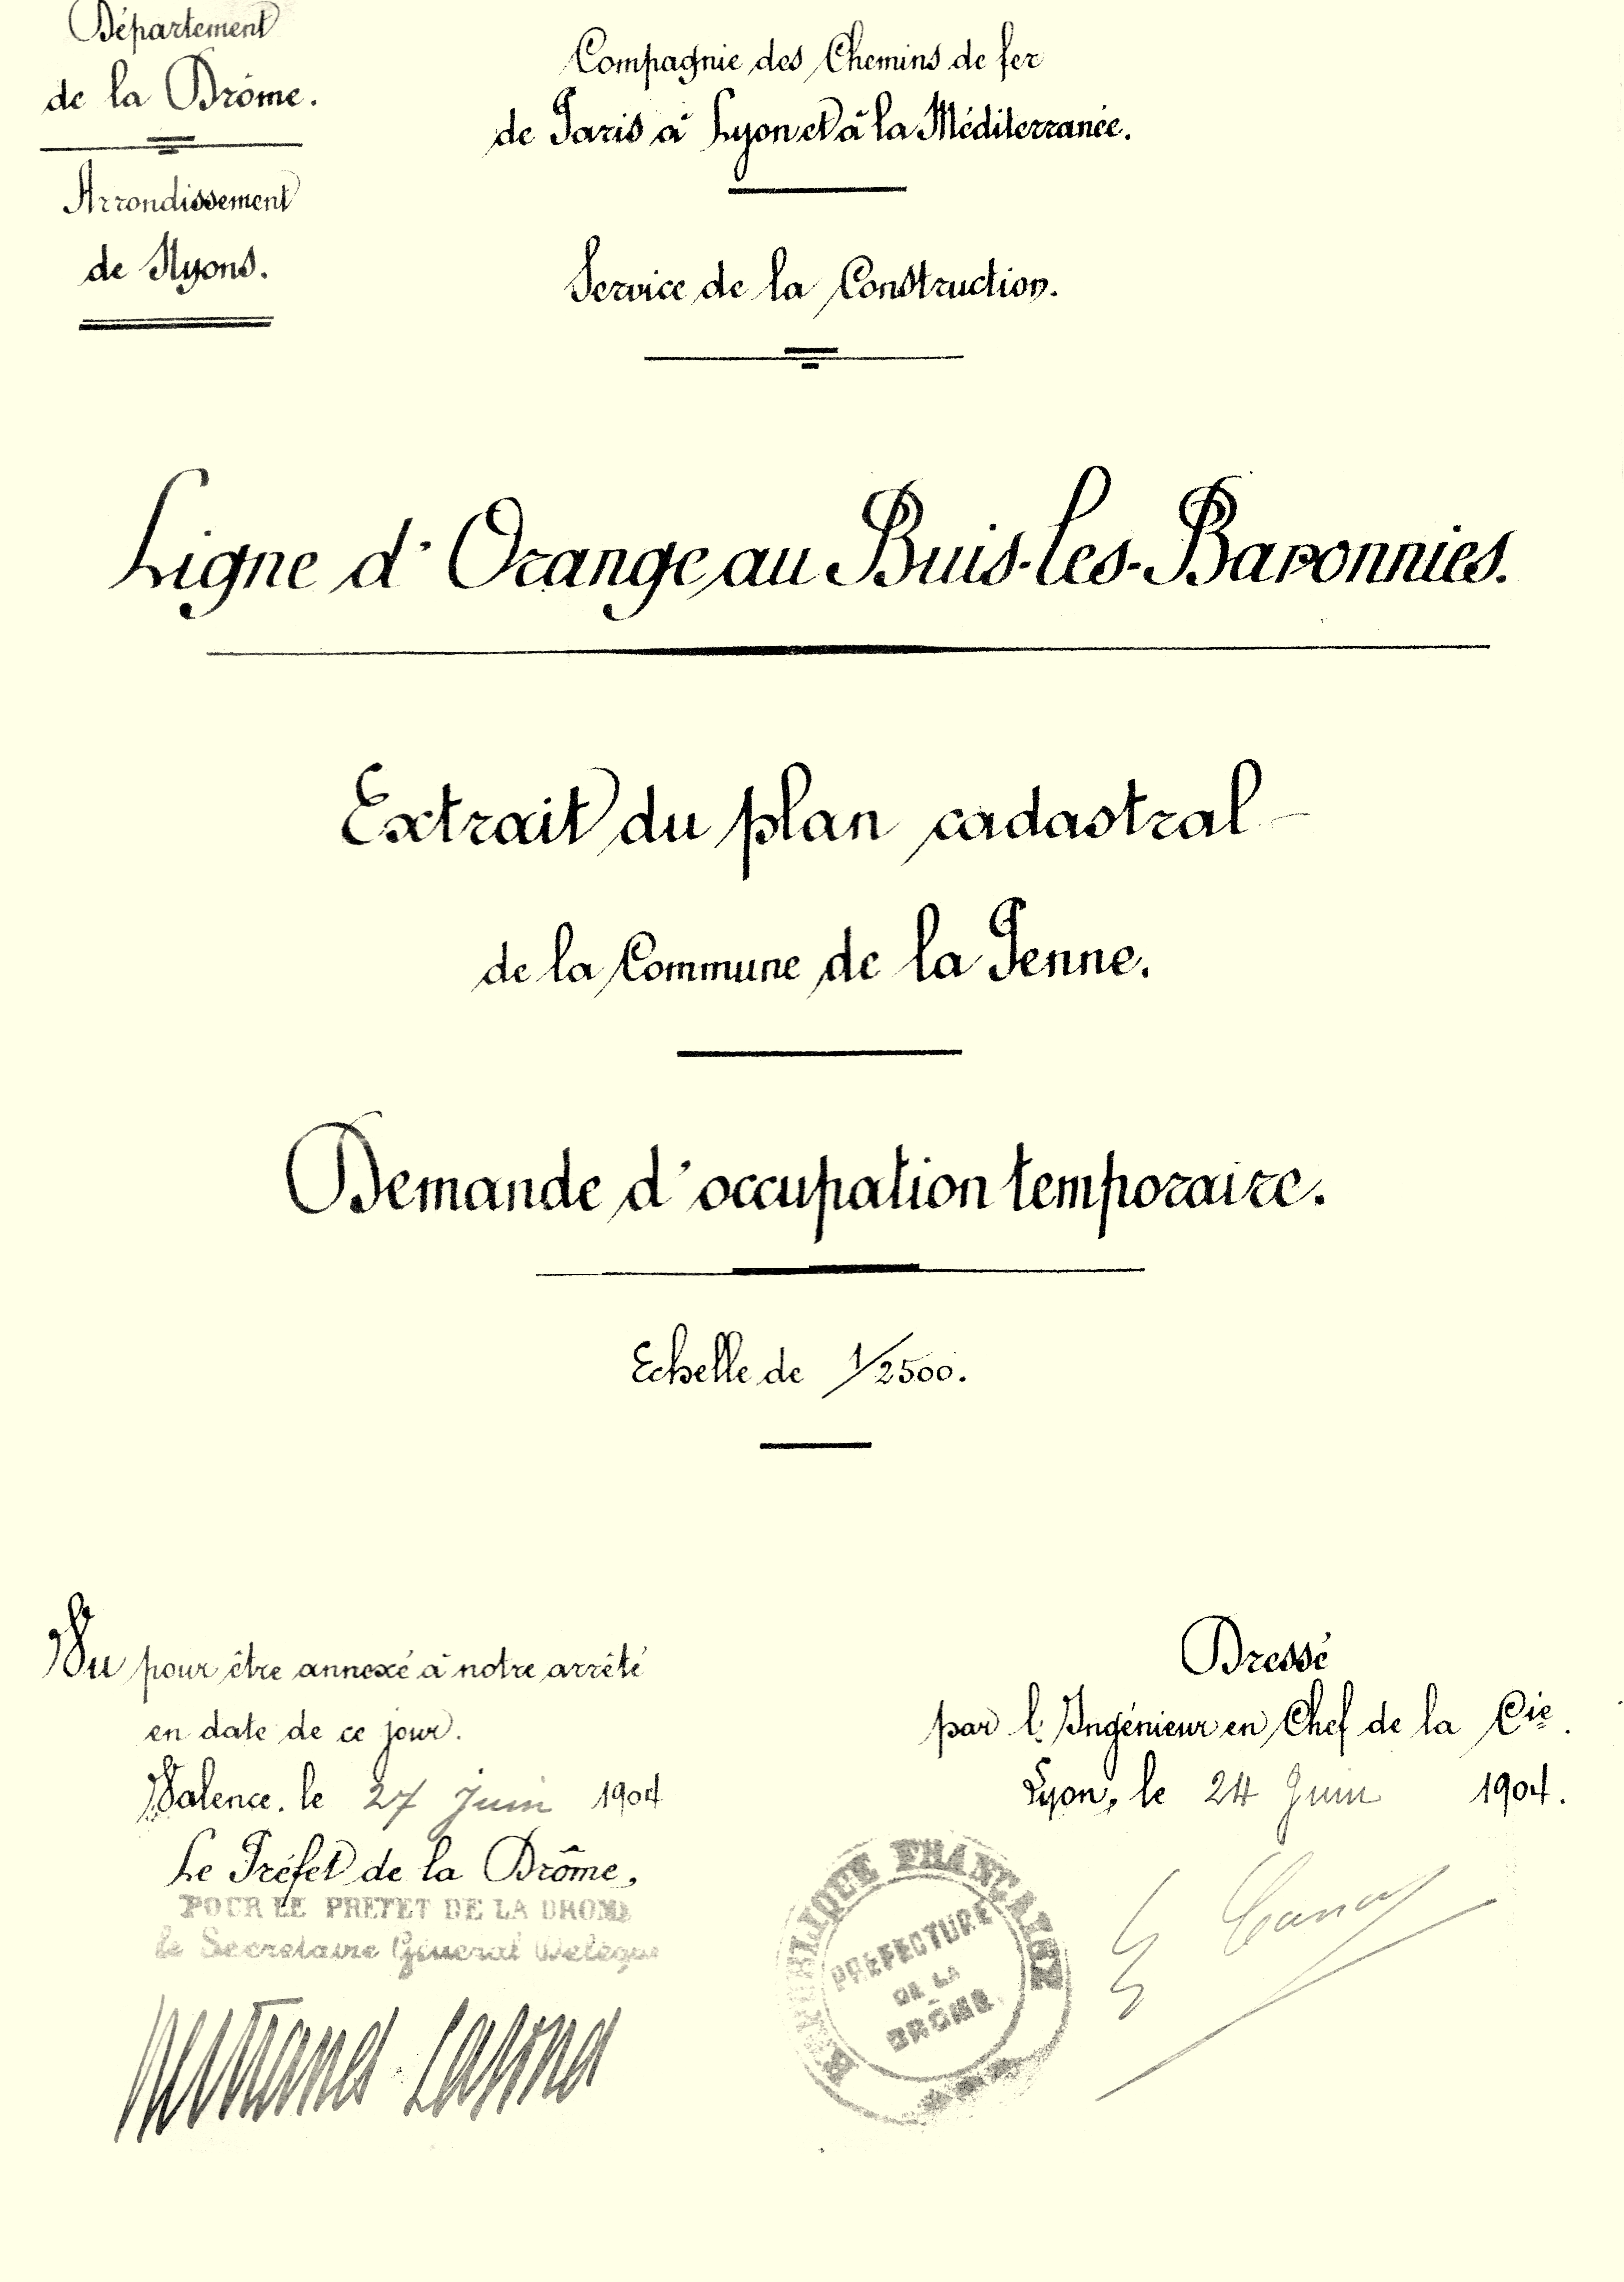 Département
de la Drôme.
Arrondissement
de Nyons.
Compagnie des Chemins de fer
de Paris à Lyon et à la Méditerranée.
Service de la Construction.
Ligne d'Orange au Buis-les-Baronnies.
Extrait du plan cadastral
de la Commune de la Penne.
Demande d'occupation temporaire.
Echelle de 1/2500.
Vu pour être annexé à notre arrêté
en date de ce jour.
Valence, le 27 Juin 1904
Le Préfet de la Drôme,
POUR LE PREFET DE LA DROME
le Secrétaire Général Délégué
Dressé
par l'Ingénieur en Chef de la Cie.
Lyon, le 24 Juin 1904.
REPUBLIQUE FRANÇAISE
PREFECTURE
DE LA
DRÔME